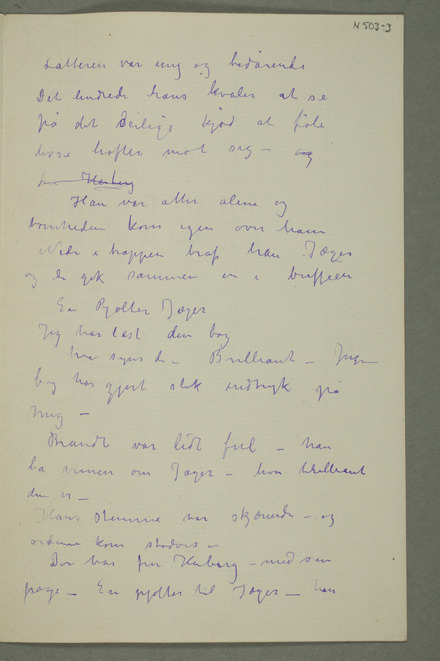 N 503-3
Latteren var ung og bedårende
Det lindrede hans kvaler at se
på det deilige kjød at føle
disse hofter mot sig – og
Herberg
Han var atter alene og
tomheden kom igen over ham
Nede i trappen traf han Jæger
og de gik sammen in i buffeen
En Pjolter Jæger
Jeg har læst din bog
hva synes du – Brilliant – Ingen
bog har gjort slik indtryk på
mig –
Brandt var lidt ful – han
la armen om Jæger – hvor brilliant
du er –
Hans stemme var skjærende – og
ordene kom stødvis –
Der var fru Herberg – med sin
page – En pjolter til Jæger – han